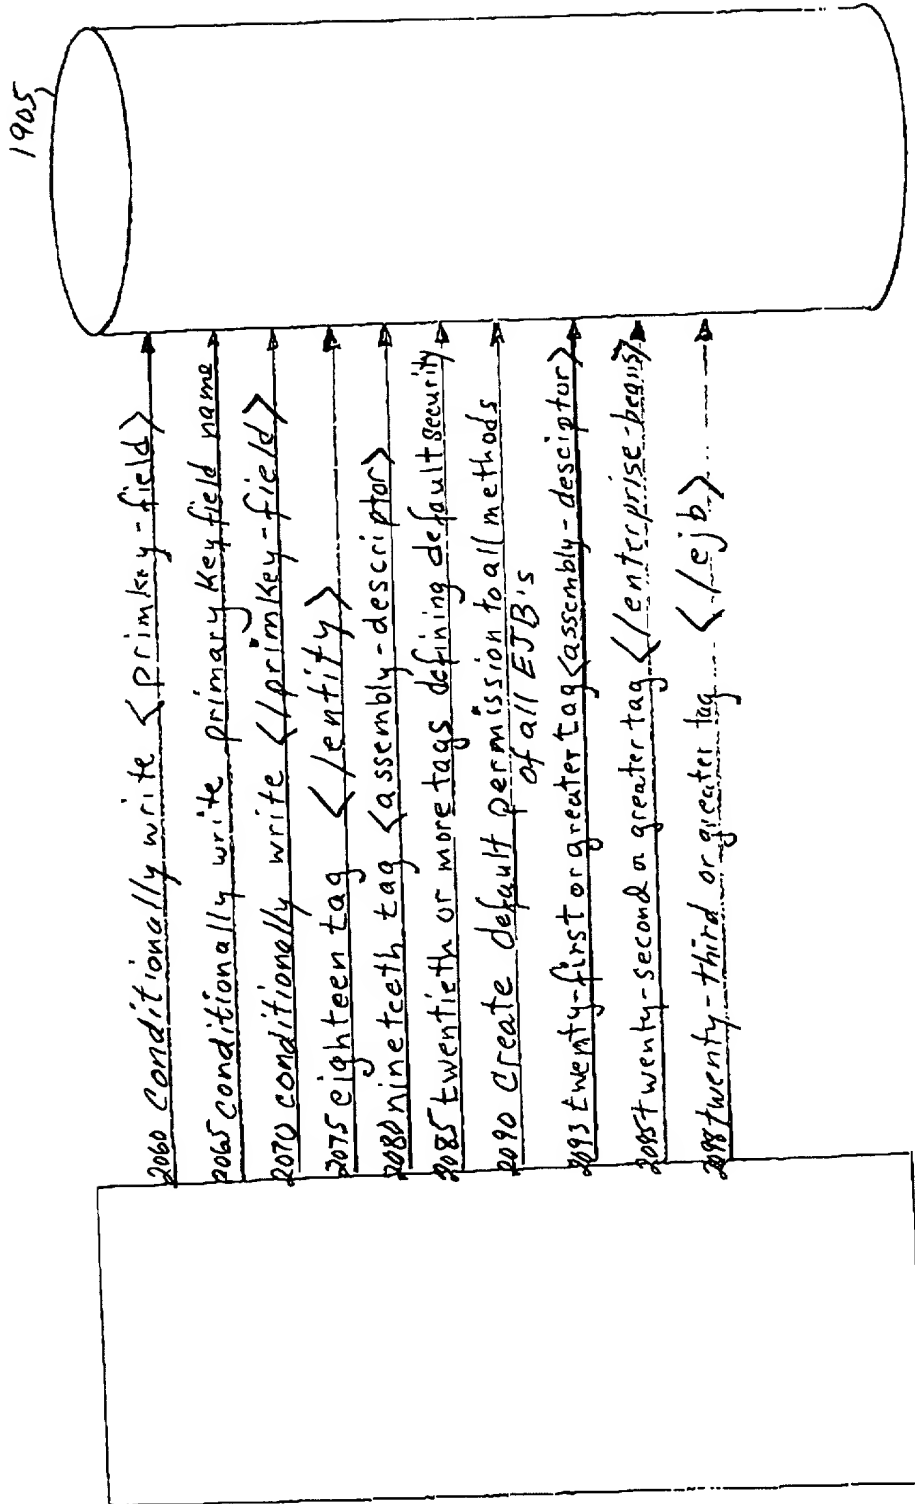 1905
2060 conditionally write <primkey-field>
2065 conditionally write primary key field name
2070 conditionally write </primkey-field>
2075 eighteen tag </entity>
2080 nineteeth tag <assembly-descriptor>
2085 twentieth or more tags defining default security
2090 create default permission to all methods
of all EJB's
2093 twenty-first or greater tag <assembly-desciptor>
2095 twenty-second or greater tag </enterprise-beans>
2098 twenty-third or greater tag </ejb>